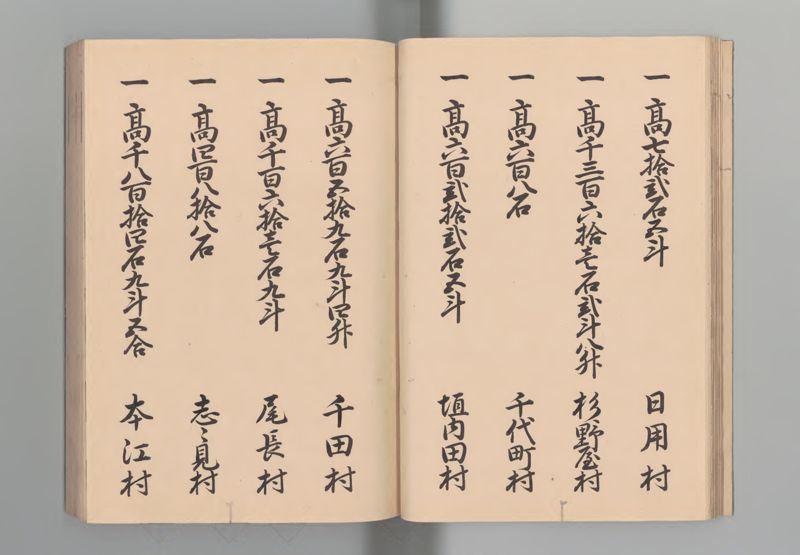 一 高七拾弐石五斗 日用村
一 高千三百六拾壱石弐斗八升 杉野屋村
一 高六百八石 千代町村
一 高六百弐拾弐石五斗 垣内田村
一 高六百五拾九石九斗四升 千田村
一 高千百六拾壱石九斗 尾長村
一 高四百八拾八石 志〻見村
一 高千八百拾四石九斗五合 本江村